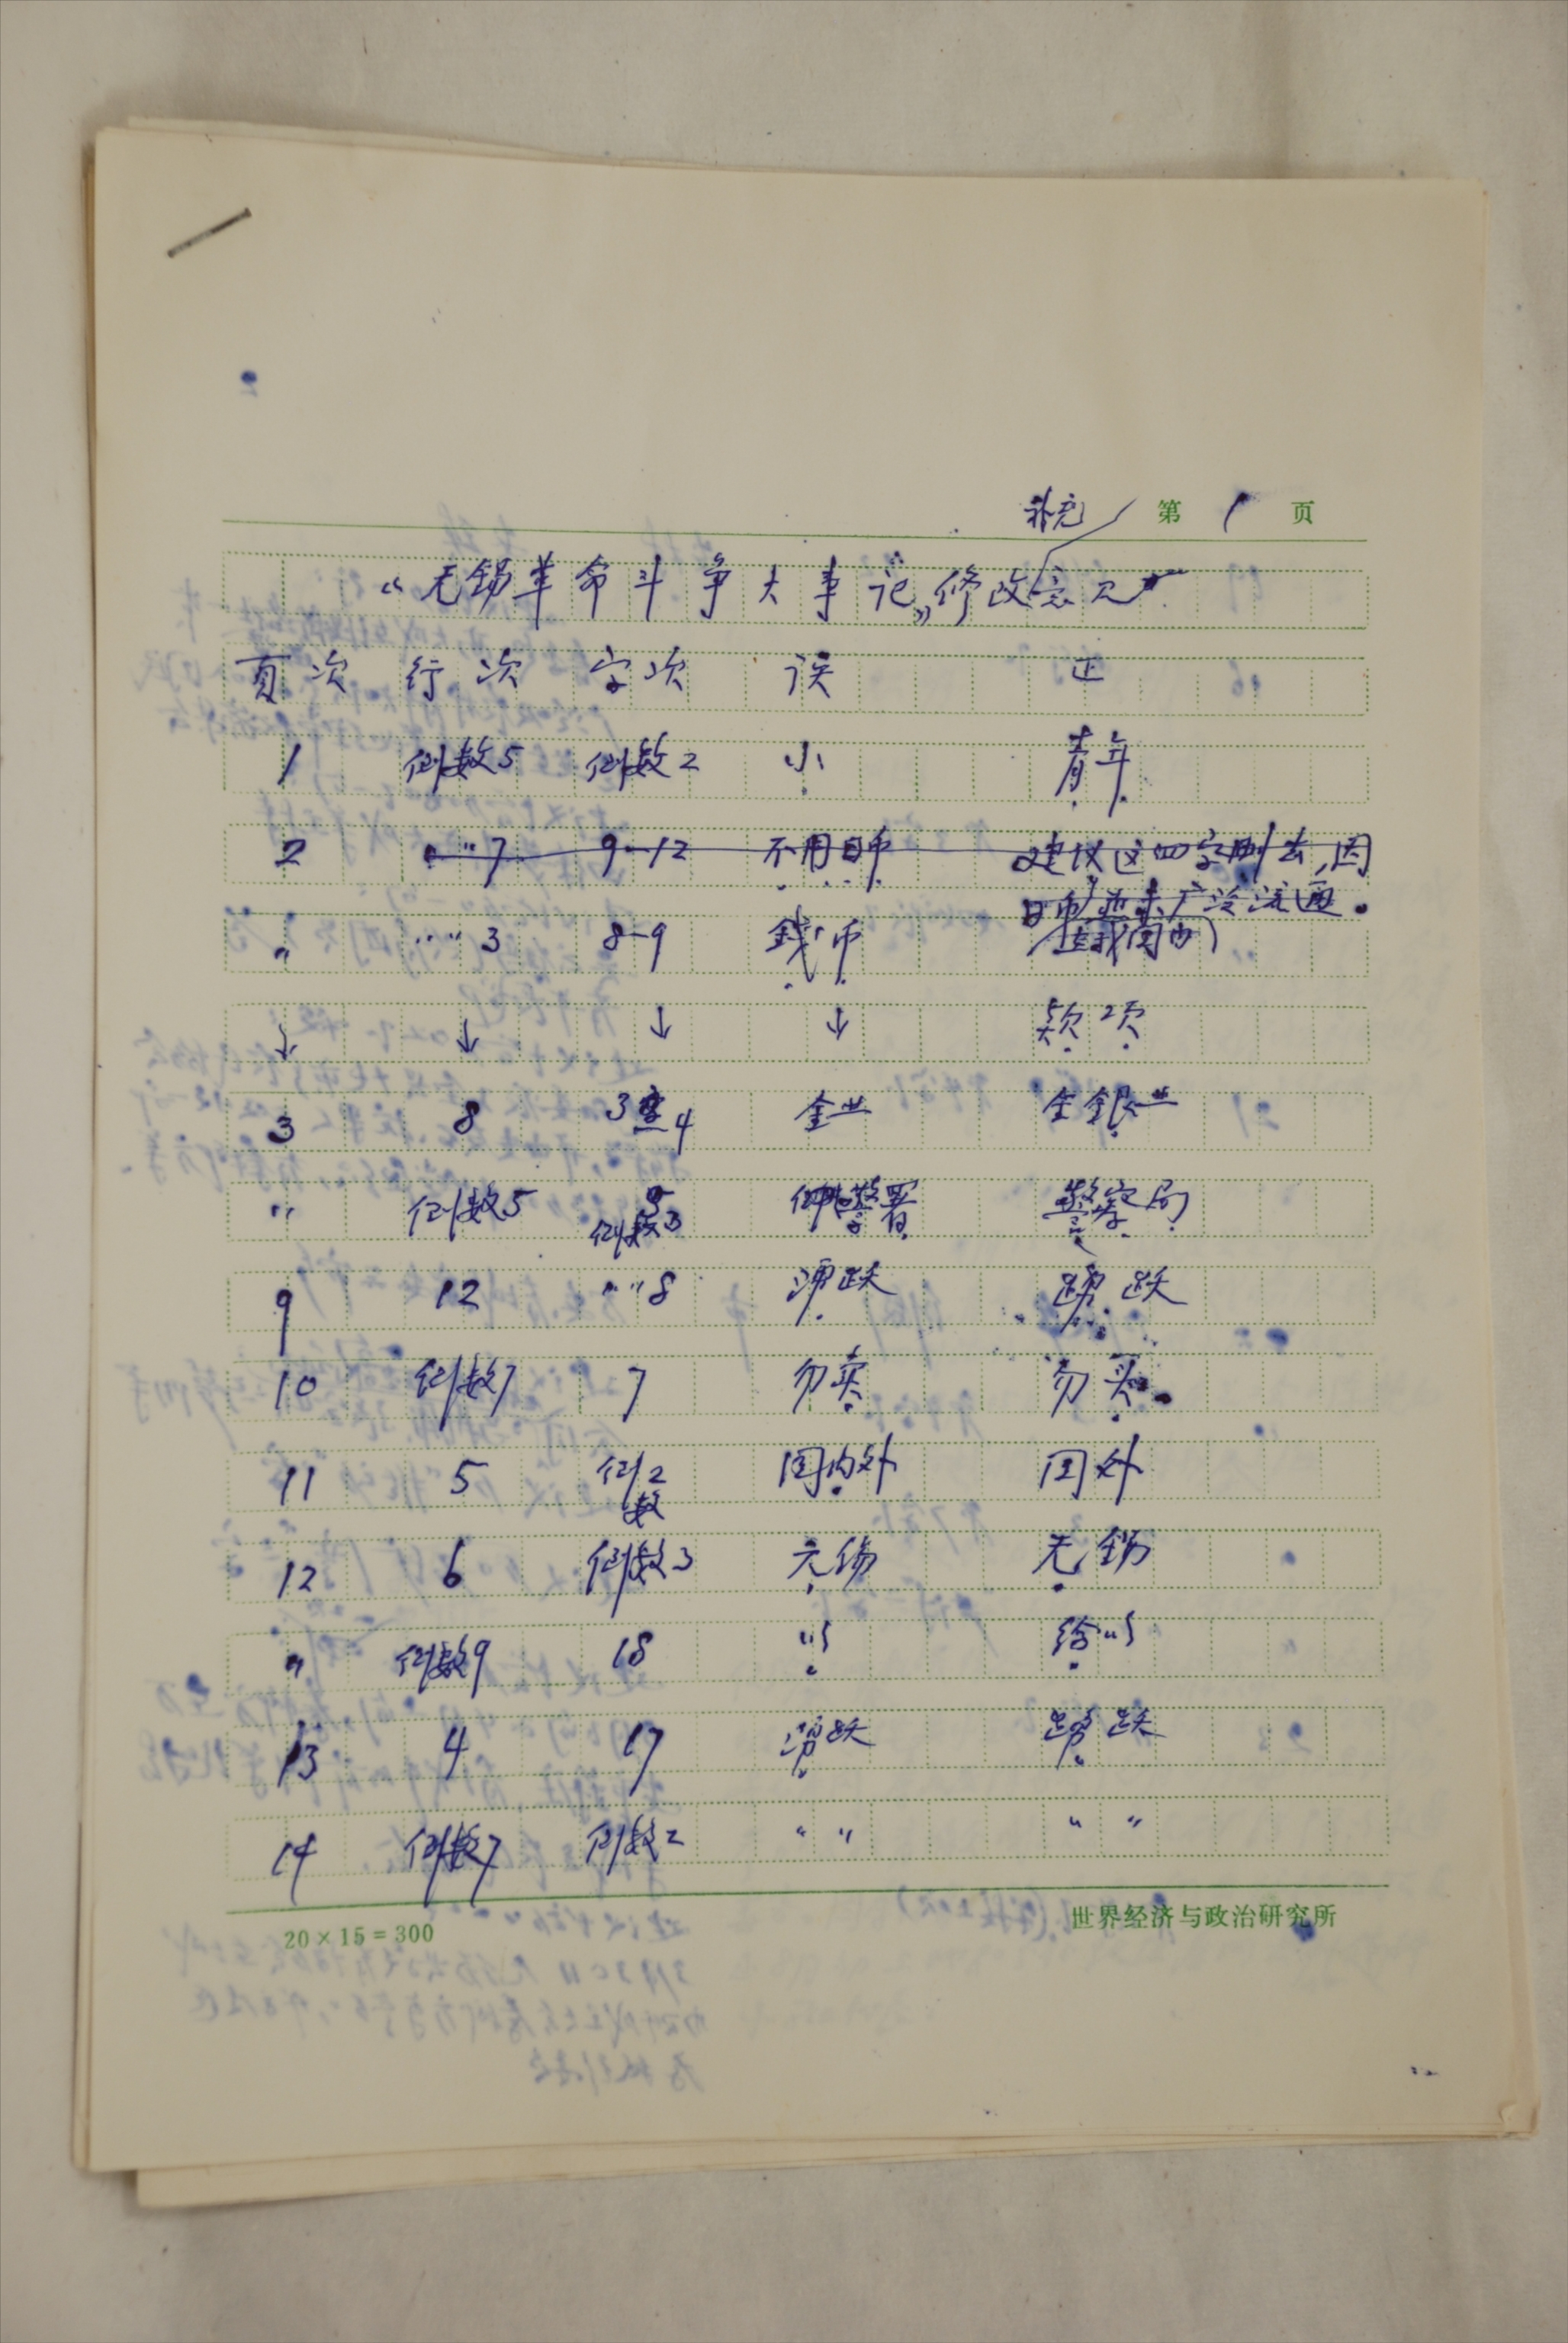 补充 第 1 页
“无锡革命斗争大事记”修改意见
页次 行次 字次 误 正
1 倒数5 倒数2 小 青年
2 〃〃7 9—12 不用日币 建议这四字删去,因
日币并未广泛流通。
在我国内
〃 〃〃3 8—9 钱币
↓ ↓ ↓ ↓ 款项
3 8 3至4 金业 金银业
〃 倒数5 倒数3 警署 警察局
9 12 〃〃8 涌跃 踊跃
10 倒数7 7 勿卖 勿买
11 5 倒数2 国内外 国外
12 6 倒数3 无锡 无锡
〃 倒数9 18 以 给以
13 4 17 涌跃 踊跃
14 倒数7 倒数2 〃〃 〃〃
20×15=300 世界经济与政治研究所